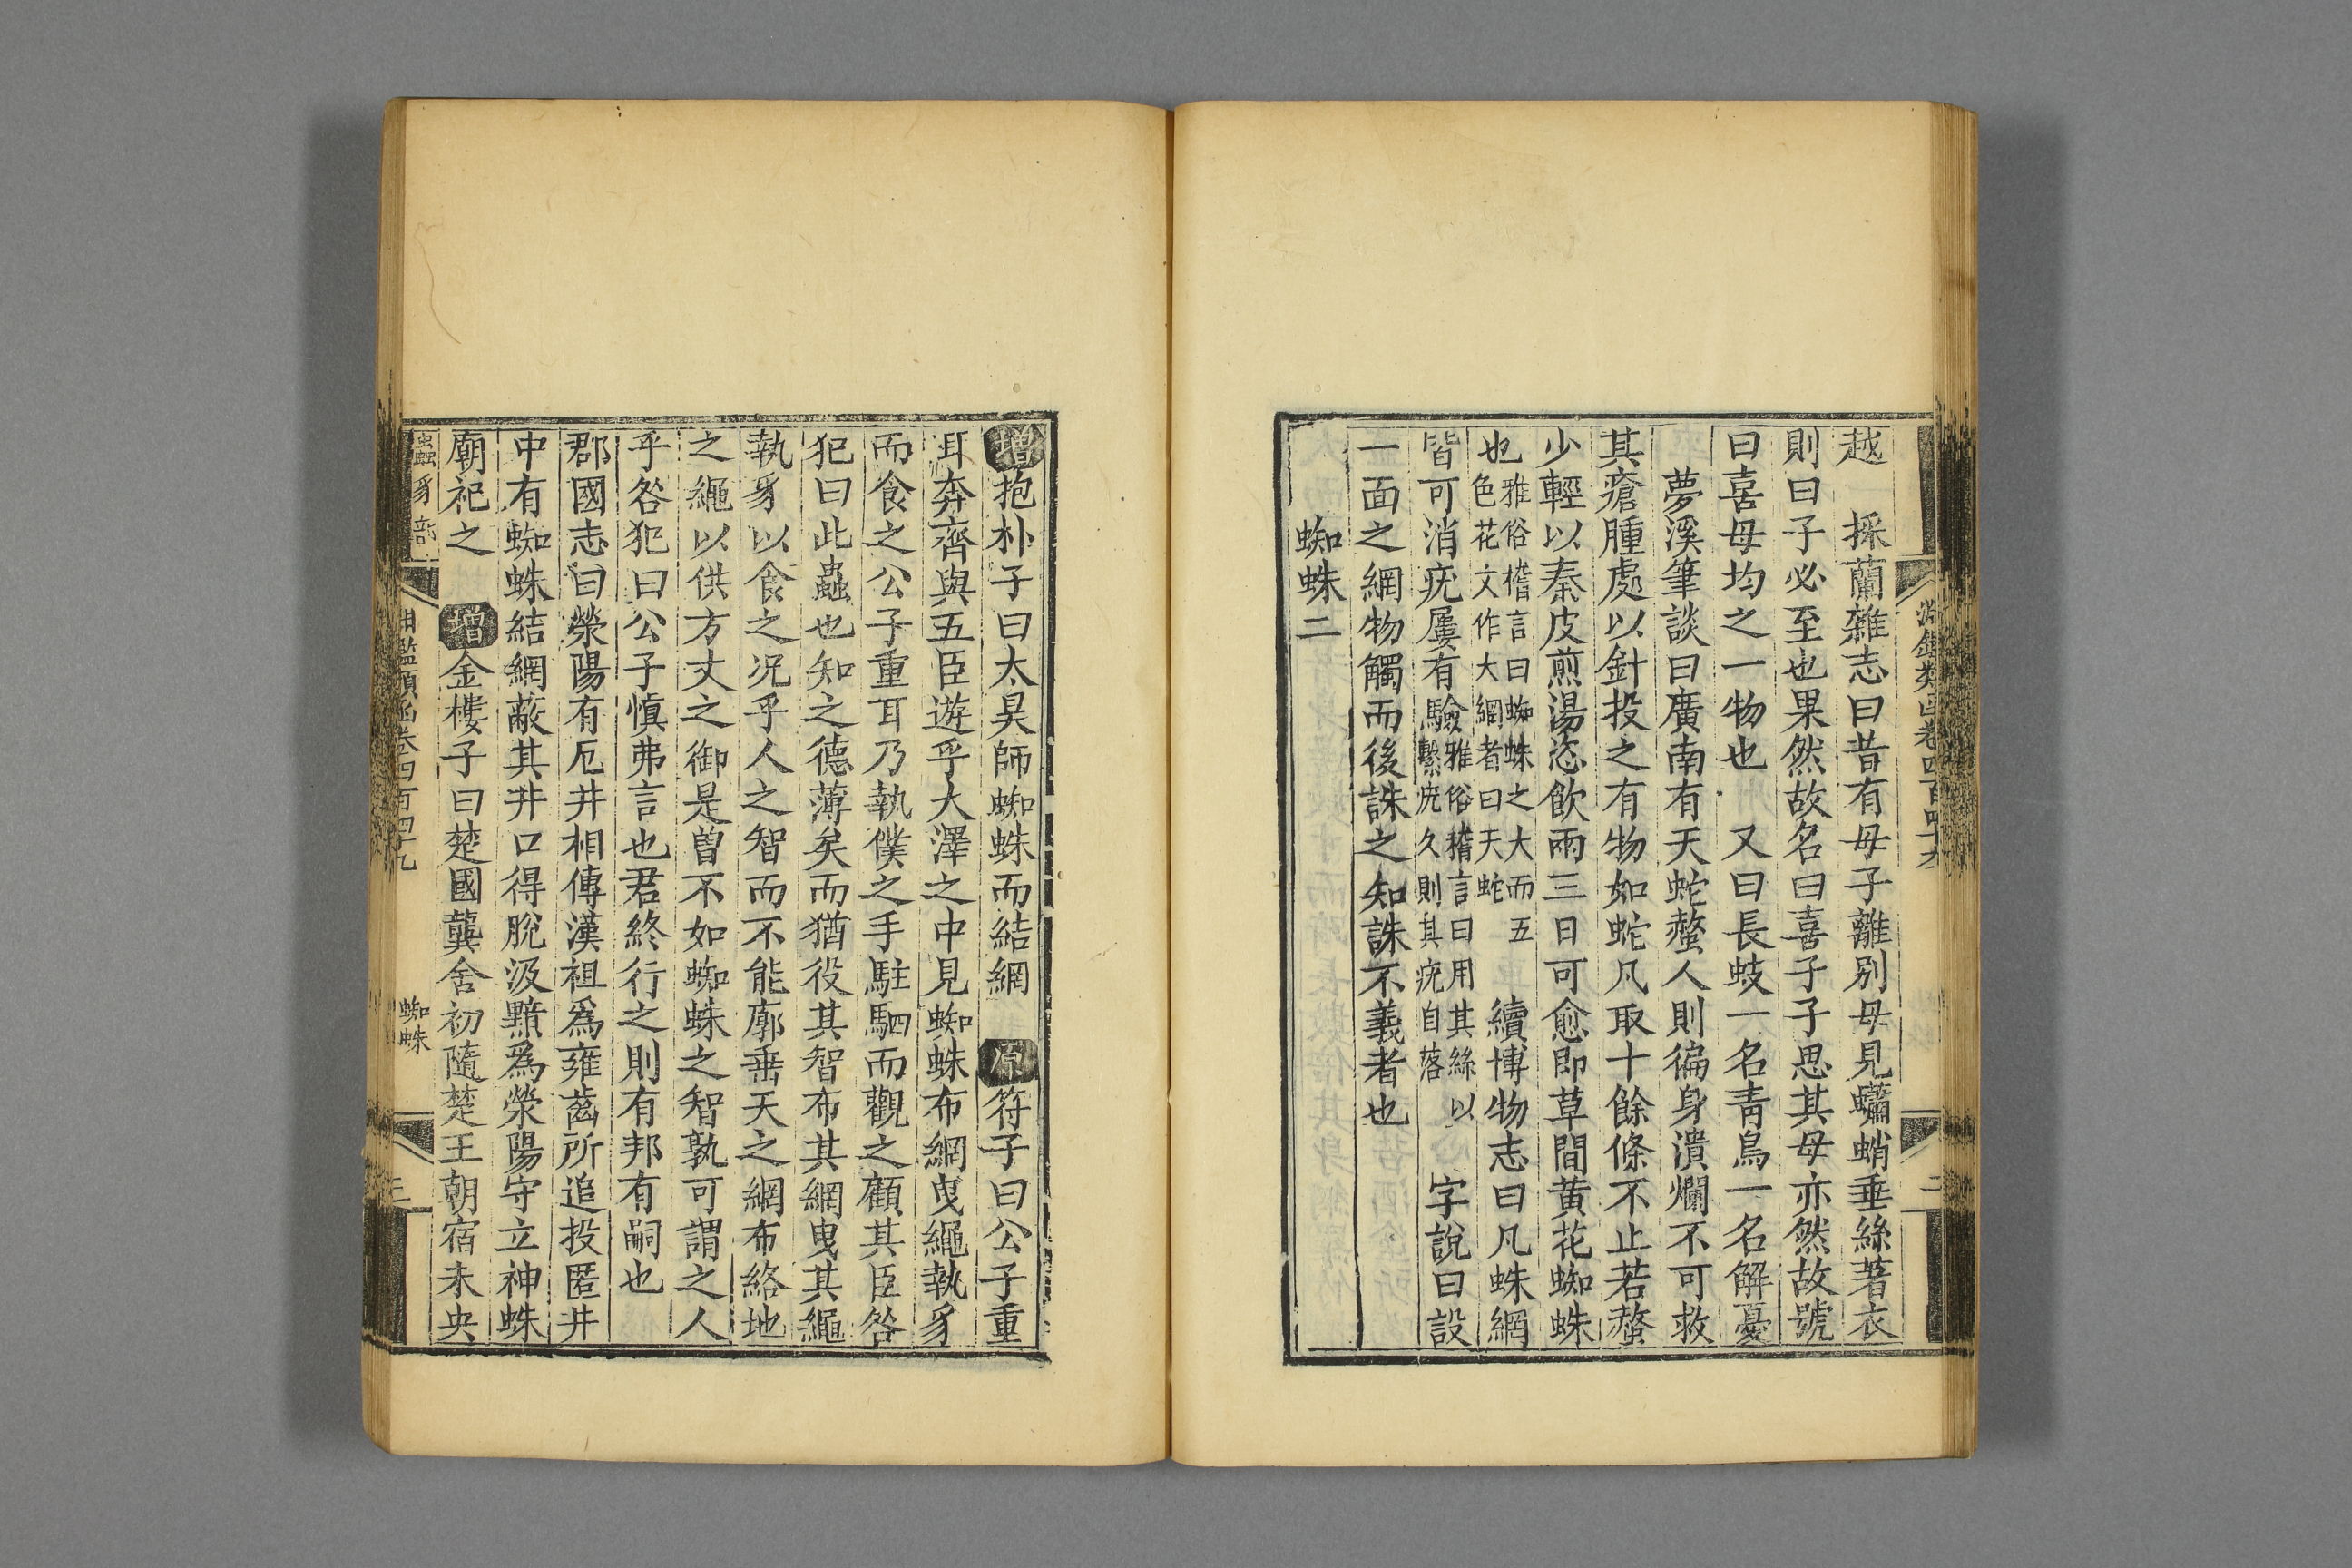 越　採蘭雜志曰昔有母子離別母見蠨蛸垂絲著衣
則曰子必至也果然故名曰喜子子思其母亦然故號
曰喜母均之一物也　又曰長蚑一名青鳥一名解憂
夢溪筆談曰廣南有天蛇螫人則徧身潰爛不可救
其瘡腫處以針投之有物如蛇凡取十餘條不止若螫
少輕以秦皮煎湯恣飲兩三日可愈即草間黄花蜘蛛
也雅俗稽言曰蜘蛛之大而五色花文作大網者曰天蛇　續博物志曰凡蛛網
皆可消疣屢有驗雅俗稽言曰用其絲以繫疣久則其疣自落　字說曰設
一面之網物觸而後誅之知誅不義者也
蜘蛛二
淵鑑類函卷四百四十九
二
增抱朴子曰太昊師蜘蛛而結網　原符子曰公子重
耳奔齊與五臣遊乎大澤之中見蜘蛛布網曳繩執豸
而食之公子重耳乃執僕之手駐駟而觀之顧其臣咎
犯曰此蟲也知之德薄矣而猶役其智布其網曳其繩
執豸以食之况乎人之智而不能廓垂天之網布絡地
之繩以供方丈之御是曾不如蜘蛛之智孰可謂之人
乎咎犯曰公子慎弗言也君終行之則有邦有嗣也
郡國志曰滎陽有厄井相傳漢祖爲雍齒所追投匿井
中有蜘蛛結網蔽其井口得脫汲黯爲滎陽守立神蛛
廟祀之　增金樓子曰楚國龔舍初隨楚王朝宿未央
蟲豸部
淵鑑類函卷四百四十九
蜘蛛
三